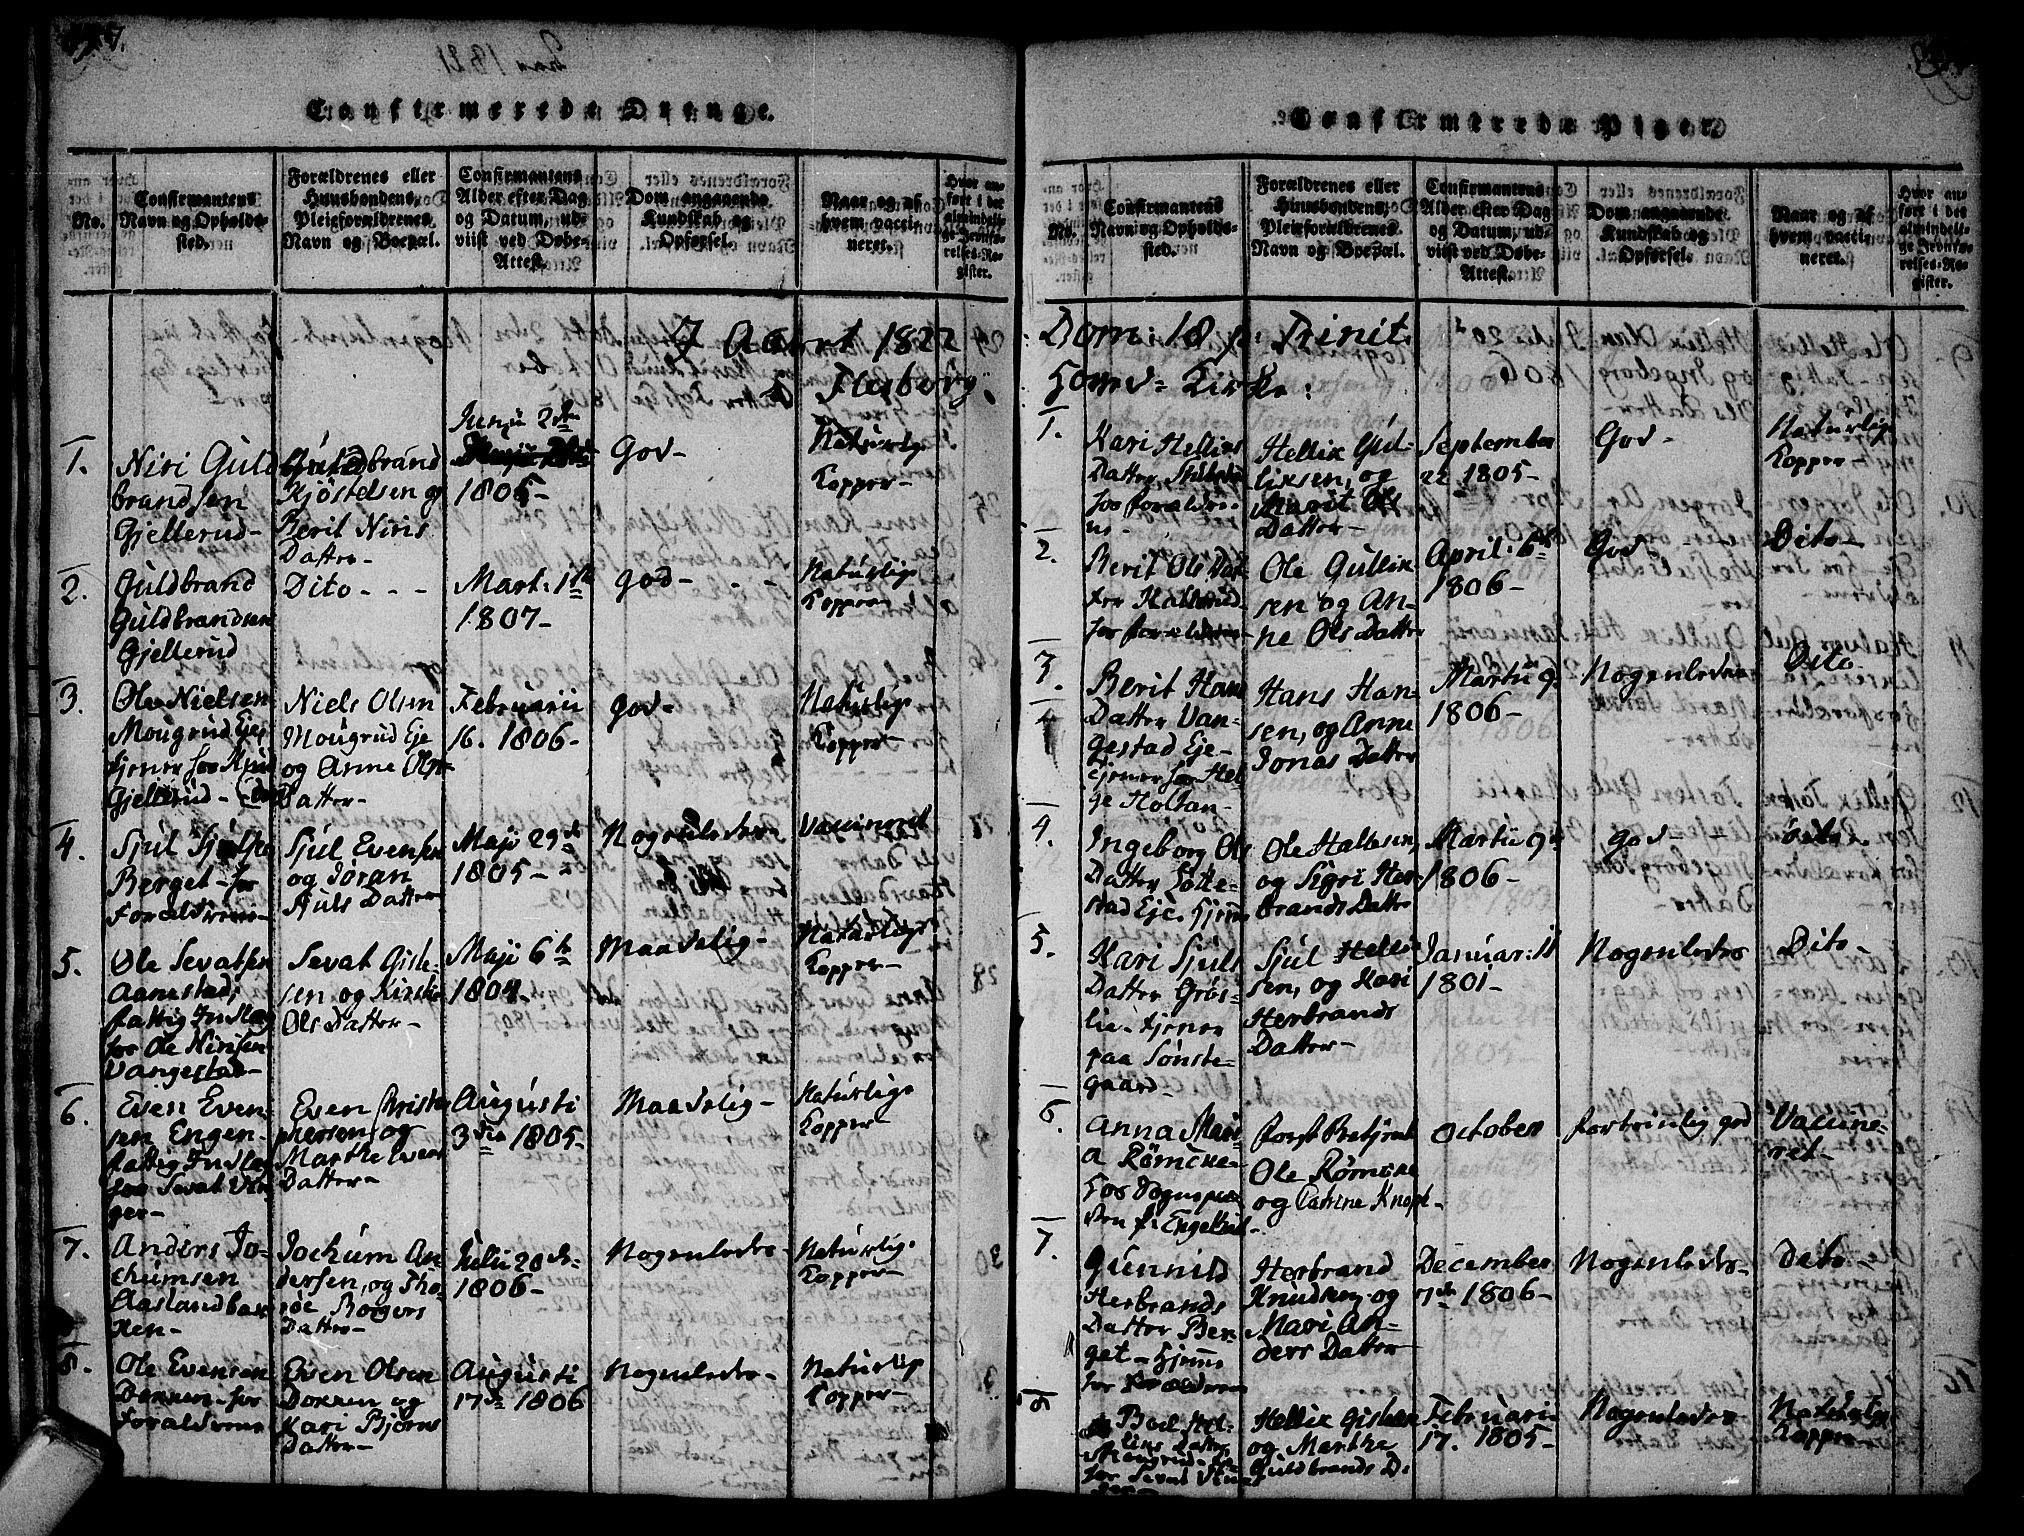 Confirmerede Drenge.
No.
Confirmantens
Navn og Opholds-
sted.
Forældrenes eller
Huusbondens,
Pleieforældrenes
Navn og Boepæl.
Confirmantens
Alder efter Dag
og Datum, ud-
viist ved Døbe-
Attest.
Dom angaaende
Kundskab og
Opførsel.
Naar og af
hvem vacci-
neret.
Hvor an-
ført i det
almindeli-
ge Jevnfø-
relses-Re-
gister.
Aaret 1822
Flesberg
1.
Niri Guld
brandsen
Gjellerud-
Guldbrand
Kjöstelsen og
Berit Niris
Datter-
Junji 2
1805-
God-
Naturlige
Kopper-
2.
Guldbrand
Guldbrandsen
Gjellerud
Dito - - -
Mart: 1
1807-
God- - -
Naturlige
Kopper
3.
Ole Nielsen
Mougrud Eje
tjener hos
Gjellerud-
Niels Olsen
Mougrud Eje
og Anne Ols
Datter-
Februarii
16. 1806-
God-
Naturlige
Kopper-
4.
Sjul
Berget- for
Foraldrene-
Sjul Evensen
og Jöran
Sjuls Datter
Maji 29
1805-
Nogenledes-
Vaccineret
5.
Ole Sevatsen
Aanestad,
fattig Indlag
for Ole Nirisen
Vangestad-
Sevat Giste-
sen og Kirsti
Ols Datter-
Maji 6
1804-
Maadelig-
Naturlige
Kopper-
6.
Even Even-
sen Engen-
fattig Indlag
for Sevat Ve
ger-
Even Christo
phersen og
Marthe Evens
Datter-
Augusti
3 1805-
Maadelig-
Naturlige
Kopper-
7.
Anders Jo-
chumsen
Aaslandbak
ken-
Jochum An
dersen, og Tho-
röe Borgers
Datter-
Julii 20
1806-
Nogenledes-
Naturlige
Kopper-
8.
Ole Evensen
Dokken- for
Foraldrene
Even Olsen
Dokken og
Kari Bjorns
Datter-
Augusti
17 1806
Nogenledes-
Naturlige
Kopper-
Confirmerede Piger.
No.
Confirmantens
Navn og Opholds-
sted.
Forældrenes eller
Huusbondens,
Pleieforældrenes
Navn og Boepæl.
Confirmantens
Alder efter Dag
og Datum, ud-
viist ved Døbe-
Attest.
Dom angaaende
Kundskab og
Opførsel.
Naar og af
hvem vacci-
neret.
Hvor an-
ført i det
almindeli-
ge Jevnfø-
relses-Re-
gister.
Dom: 18 p: Trinit.
Hoved- Kirke:
1.
Kari Hellies
Datter
hos foraldre-
ne-
Hellik Gul-
liksen, og
Marit Ols
Datter-
September
22 1805-
God-
Naturlige
Kopper-
2.
Berit Ols Dat
ter Kallerud-
hos foraldrene-
Ole Gullik
sen og An-
ne Ols Datter
April: 6
1806-
God- -
Dito-
3.
Berit Hans
Datter Van-
gestad Eje-
tjener hos Hel
ge Holtan-
Hans Han-
sen, og Anne
Jonas Datter
Martii 9.
1806-
Nogenledes
Dito
4.
Ingeborg Ols
Datter Totte-
stad Eje. hjeme
Ole Halvesen,
og Sigri Her-
brands Datter
Martii 9
1806-
God- -
Dito.
5.
Kari Sjuls
Datter Grös-
lie- tjener
paa Sönste-
gaard-
Sjul Hellik
sen, og Kari
Herbrands
Datter-
Januar: 11
1801-
Nogenledes
Dito-
6.
Anna Mari-
a Römcke-
hos Sogneprae
sten
Forst Betjent
Ole Römcke
og Catrine Knoph-
October
fortrinlig god
Vaccine-
ret-
7.
Gunnild
Herbrands
Datter Ber-
get- hjeme
for Foraldrene
Herbrand
Knudsen og
Mari An-
ders Datter
December
7 1806-
Nogenledes-
Dito-
8
Hel-
liks Datter
for Sevat
Hellik Gisle
og Marthe
Guldbrands D:
Februari
17. 1805-
Nogenledes-
Naturlige
Kopper-